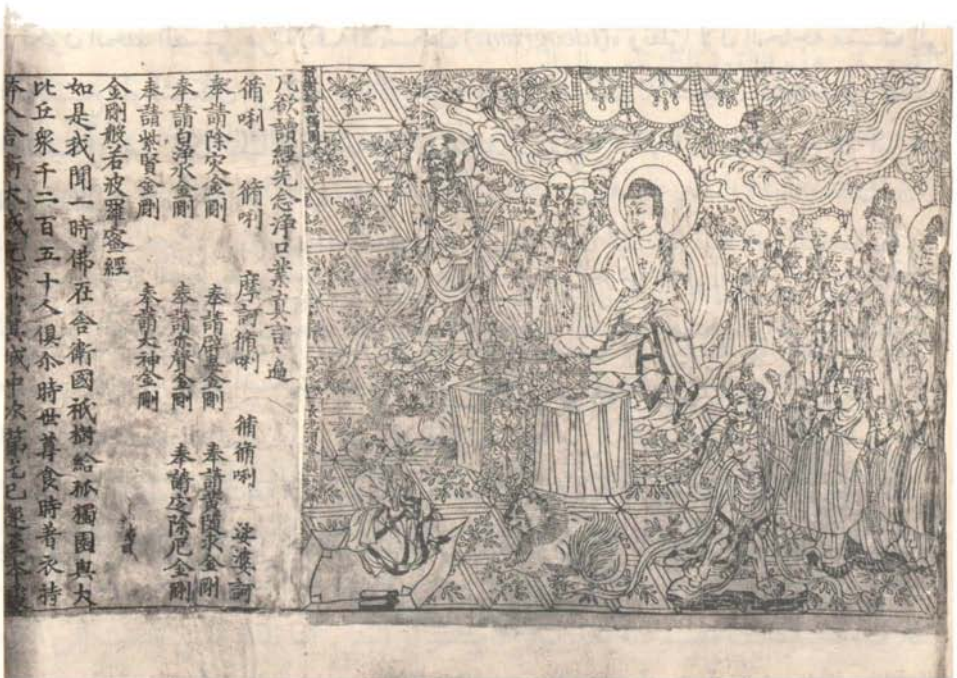 祇樹給孤獨園
長老須菩提
凡欲讀經先念淨口業真言一遍
脩唎 脩唎 摩訶脩唎 脩脩唎 娑婆訶
奉請除灾金剛 奉請辟毒金剛 奉請黄随求金剛
奉請白淨水金剛 奉請赤聲金剛 奉請定除厄金剛
奉請紫賢金剛 奉請大神金剛
金剛般若波羅蜜經
如是我聞一時佛在舍衛國祇樹給孤獨園與大
比丘衆千二百五十人俱尒時世尊食時著衣持
入舍衛大城乞 城中次第乞已還至本